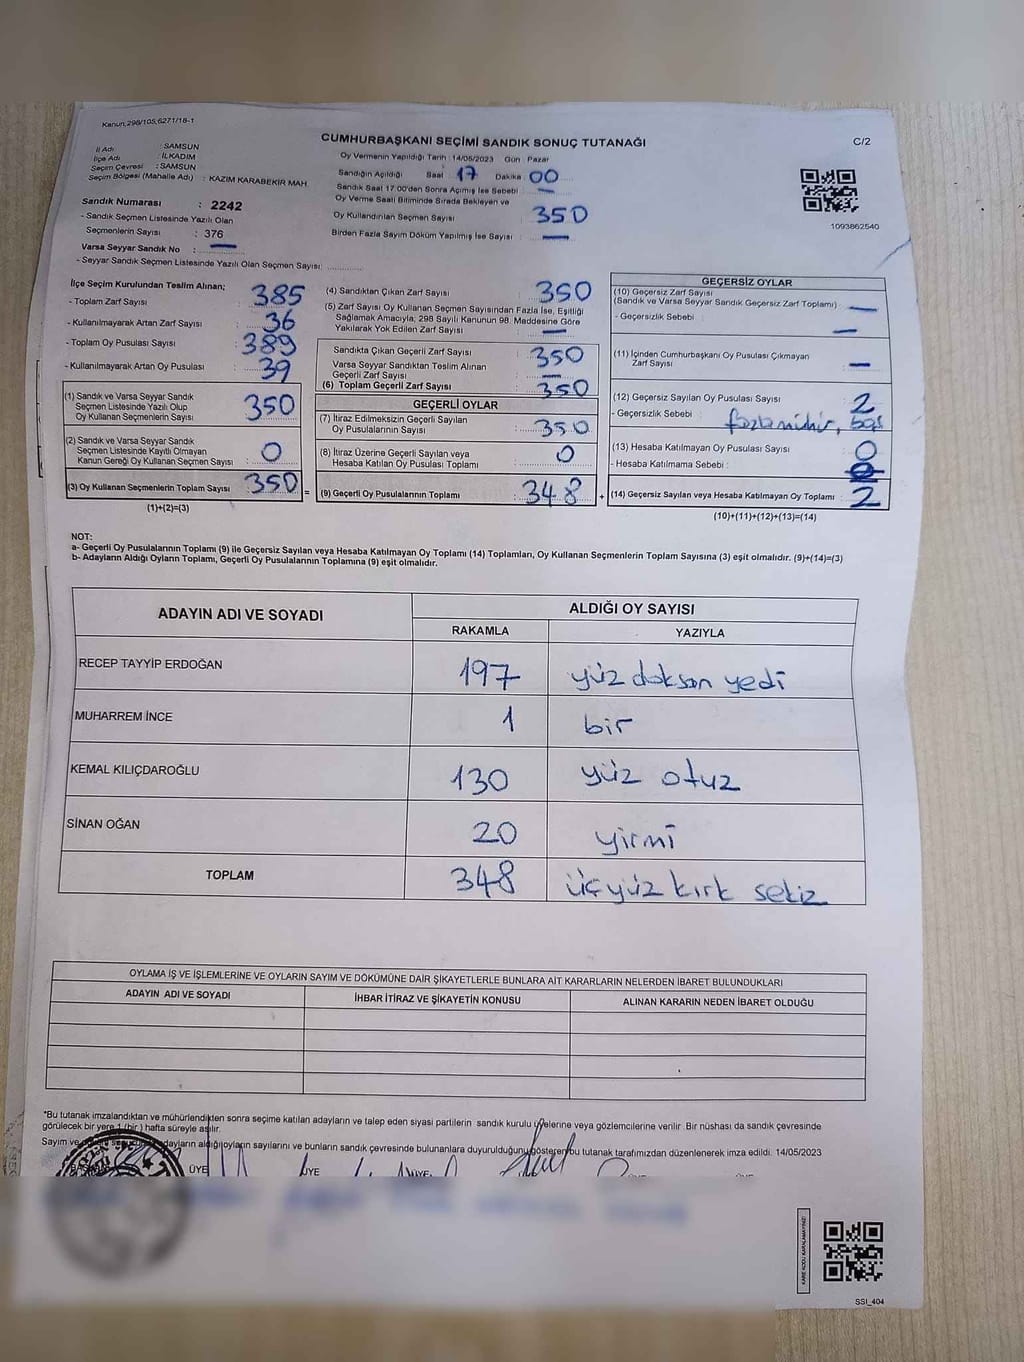 Kanun:298/105,6271/18-1
CUMHURBAŞKANI SEÇİMİ SANDIK SONUÇ TUTANAĞI
C/2
İl Adı : SAMSUN
İlçe Adı : İLKADIM
Seçim Çevresi : SAMSUN
Seçim Bölgesi (Mahalle Adı) : KAZIM KARABEKİR MAH.
Sandık Numarası : 2242
- Sandık Seçmen Listesinde Yazılı Olan
Seçmenlerin Sayısı : 376
Varsa Seyyar Sandık No : —
- Seyyar Sandık Seçmen Listesinde Yazılı Olan Seçmen Sayısı: ............
Oy Vermenin Yapıldığı Tarih : 14/05/2023 Gün : Pazar
Sandığın Açıldığı Saat 17 Dakika 00
Sandık Saat 17.00'den Sonra Açılmış İse Sebebi : —
Oy Verme Saati Bitiminde Sırada Bekleyen ve
Oy Kullandırılan Seçmen Sayısı 350
Birden Fazla Sayım Döküm Yapılmış İse Sayısı : —
1093862540
İlçe Seçim Kurulundan Teslim Alınan;
- Toplam Zarf Sayısı : 385
- Kullanılmayarak Artan Zarf Sayısı : 36
- Toplam Oy Pusulası Sayısı : 389
- Kullanılmayarak Artan Oy Pusulası : 39
(1) Sandık ve Varsa Seyyar Sandık
Seçmen Listesinde Yazılı Olup
Oy Kullanan Seçmenlerin Sayısı : 350
(2) Sandık ve Varsa Seyyar Sandık
Seçmen Listesinde Kayıtlı Olmayan
Kanun Gereği Oy Kullanan Seçmen Sayısı : 0
(3) Oy Kullanan Seçmenlerin Toplam Sayısı : 350 =
(1)+(2)=(3)
(4) Sandıktan Çıkan Zarf Sayısı 350
(5) Zarf Sayısı Oy Kullanan Seçmen Sayısından Fazla İse, Eşitliği
Sağlamak Amacıyla; 298 Sayılı Kanunun 98. Maddesine Göre
Yakılarak Yok Edilen Zarf Sayısı : —
Sandıkta Çıkan Geçerli Zarf Sayısı 350
Varsa Seyyar Sandıktan Teslim Alınan
Geçerli Zarf Sayısı : —
(6) Toplam Geçerli Zarf Sayısı : 350
GEÇERLİ OYLAR
(7) İtiraz Edilmeksizin Geçerli Sayılan
Oy Pusulalarının Sayısı : 350
(8) İtiraz Üzerine Geçerli Sayılan veya
Hesaba Katılan Oy Pusulası Toplamı : 0
(9) Geçerli Oy Pusulalarının Toplamı : 348 +
GEÇERSİZ OYLAR
(10) Geçersiz Zarf Sayısı
(Sandık ve Varsa Seyyar Sandık Geçersiz Zarf Toplamı) : —
- Geçersizlik Sebebi : —
(11) İçinden Cumhurbaşkanı Oy Pusulası Çıkmayan
Zarf Sayısı : —
(12) Geçersiz Sayılan Oy Pusulası Sayısı : 2
- Geçersizlik Sebebi : fazla mühür, boş
(13) Hesaba Katılmayan Oy Pusulası Sayısı : 0
- Hesaba Katılmama Sebebi :
(14) Geçersiz Sayılan veya Hesaba Katılmayan Oy Toplamı : 2
(10)+(11)+(12)+(13)=(14)
NOT:
a- Geçerli Oy Pusulalarının Toplamı (9) ile Geçersiz Sayılan veya Hesaba Katılmayan Oy Toplamı (14) Toplamları, Oy Kullanan Seçmenlerin Toplam Sayısına (3) eşit olmalıdır. (9)+(14)=(3)
b- Adayların Aldığı Oyların Toplamı, Geçerli Oy Pusulalarının Toplamına (9) eşit olmalıdır.
ADAYIN ADI VE SOYADI ALDIĞI OY SAYISI
RAKAMLA YAZIYLA
RECEP TAYYİP ERDOĞAN 197 yüz doksan yedi
MUHARREM İNCE 1 bir
KEMAL KILIÇDAROĞLU 130 yüz otuz
SİNAN OĞAN 20 yirmi
TOPLAM 348 üçyüz kırk sekiz
OYLAMA İŞ VE İŞLEMLERİNE VE OYLARIN SAYIM VE DÖKÜMÜNE DAİR ŞİKAYETLERLE BUNLARA AİT KARARLARIN NELERDEN İBARET BULUNDUKLARI
ADAYIN ADI VE SOYADI İHBAR İTİRAZ VE ŞİKAYETİN KONUSU ALINAN KARARIN NEDEN İBARET OLDUĞU
*Bu tutanak imzalandıktan ve mühürlendikten sonra seçime katılan adayların ve talep eden siyasi partilerin sandık kurulu üyelerine veya gözlemcilerine verilir. Bir nüshası da sandık çevresinde
görülecek bir yere 1 (bir) hafta süreyle asılır.
Sayım ve adayların aldığı oyların sayılarını ve bunların sandık çevresinde bulunanlara duyurulduğunu gösteren bu tutanak tarafımızdan düzenlenerek imza edildi. 14/05/2023
BAŞKAN ÜYE ÜYE ÜYE ÜYE ÜYE
KARE KODU KARALAMAYINIZ!
SSI_404